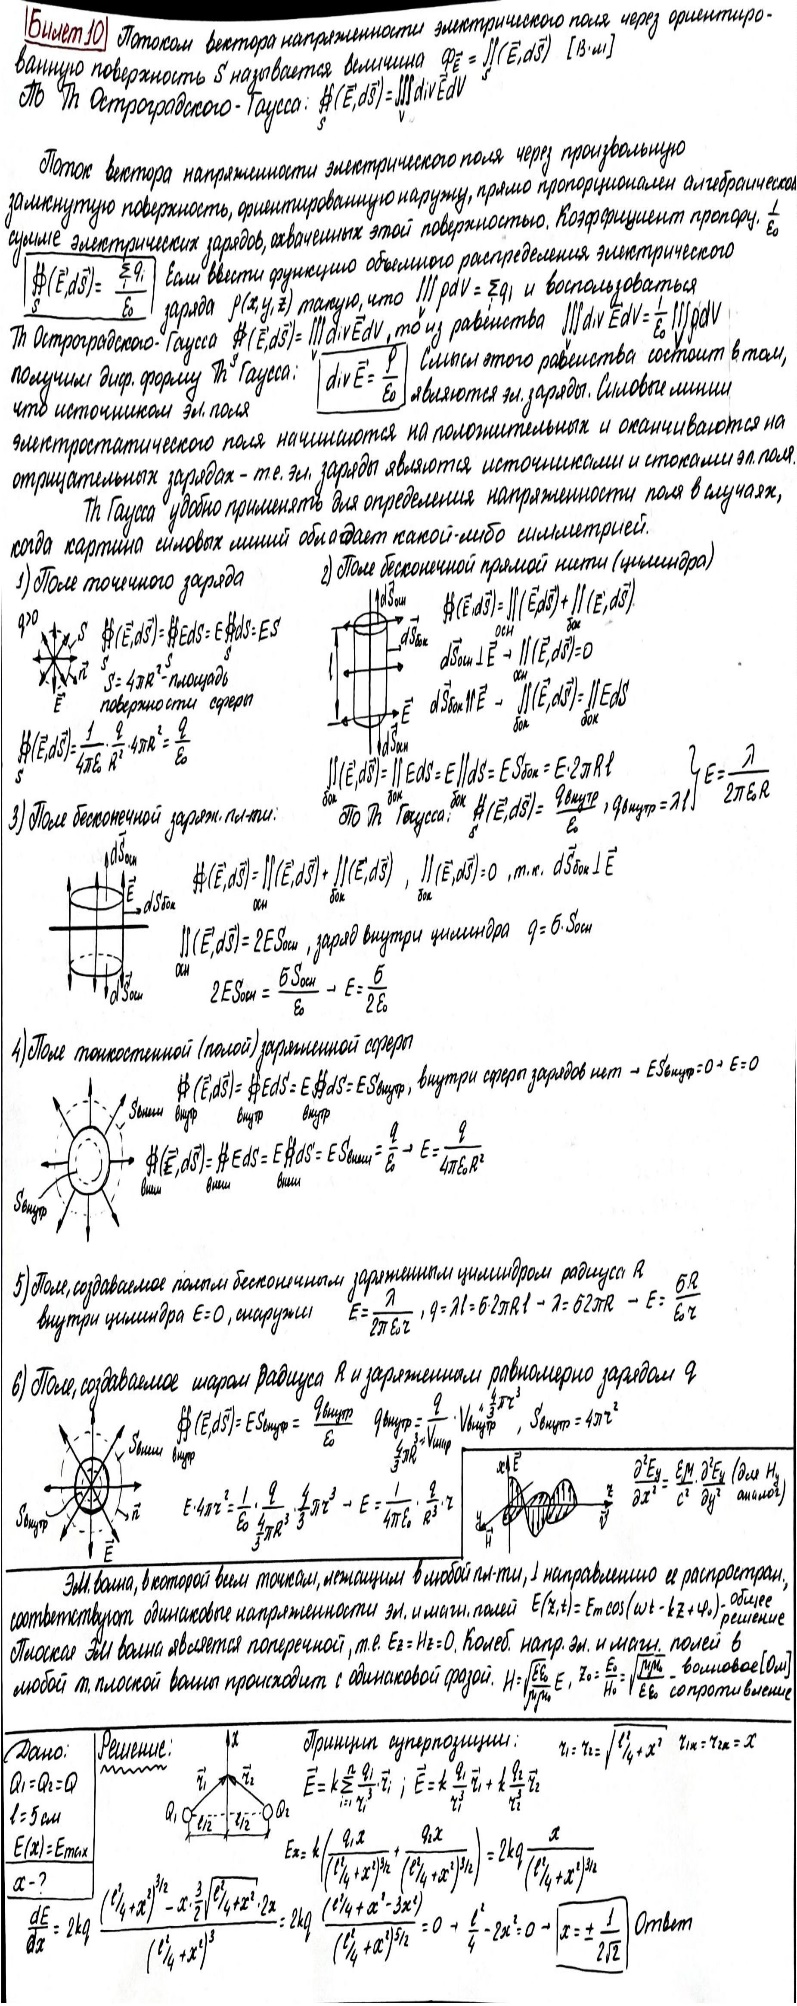 Билет 10 Потоком вектора напряженности электрического поля через ориентиро-
ванную поверхность S называется величина Φ_E⃗ = ∬_S (E⃗,dS⃗) [В·м]
По Th Остроградского-Гаусса: ∯_S (E⃗,dS⃗) = ∭_V div E⃗ dV
Поток вектора напряженности электрического поля через произвольную
замкнутую поверхность, ориентированную наружу, прямо пропорционален алгебраической
сумме электрических зарядов, охваченных этой поверхностью. Коэффициент пропорц. 1/ε₀
∯_S (E⃗,dS⃗) = Σqᵢ/ε₀ Если ввести функцию объемного распределения электрического
заряда ρ(x,y,z) такую, что ∭_V ρdV = Σqᵢ и воспользоваться
Th Остроградского-Гаусса ∯_S (E⃗,dS⃗) = ∭_V div E⃗ dV, то из равенства ∭_V div E⃗ dV = 1/ε₀ ∭_V ρdV
получим диф. форму Th Гаусса: div E⃗ = ρ/ε₀ Смысл этого равенства состоит в том,
что источником эл. поля являются эл. заряды. Силовые линии
электростатического поля начинаются на положительных и оканчиваются на
отрицательных зарядах - т.е. эл. заряды являются источниками и стоками эл. поля.
Th Гаусса удобно применять для определения напряженности поля в случаях,
когда картина силовых линий обладает какой-либо симметрией.
1) Поле точечного заряда
q>0 S n⃗ E⃗
∯_S (E⃗,dS⃗) = ∯_S EdS = E∯_S dS = ES
S = 4πR² - площадь
поверхности сферы
∯_S (E⃗,dS⃗) = 1/4πε₀ · q/R² · 4πR² = q/ε₀
2) Поле бесконечной прямой нити (цилиндра)
dS⃗осн dS⃗бок l E⃗ dS⃗осн
∯(E⃗,dS⃗) = ∬_осн (E⃗,dS⃗) + ∬_бок (E⃗,dS⃗)
dS⃗осн ⊥ E⃗ → ∬_осн (E⃗,dS⃗) = 0
dS⃗бок ⇈ E⃗ → ∬_бок (E⃗,dS⃗) = ∬_бок EdS
∬_бок (E⃗,dS⃗) = ∬_бок EdS = E∬_бок dS = ESбок = E·2πRl
По Th Гаусса: ∯_S (E⃗,dS⃗) = qвнутр/ε₀, qвнутр = λl } E = λ/2πε₀R
3) Поле бесконечной заряж. пл-ти:
dS⃗осн E⃗ dSбок dS⃗осн
∯(E⃗,dS⃗) = ∬_осн (E⃗,dS⃗) + ∬_бок (E⃗,dS⃗), ∬_бок (E⃗,dS⃗) = 0, т.к. dS⃗бок ⊥ E⃗
∬_осн (E⃗,dS⃗) = 2ESосн, заряд внутри цилиндра q = б·Sосн
2ESосн = бSосн/ε₀ → E = б/2ε₀
4) Поле тонкостенной (полой) заряженной сферы
Sвнеш Sвнутр
∯_внутр (E⃗,dS⃗) = ∯_внутр EdS = E∯_внутр dS = ESвнутр, внутри сферы зарядов нет → ESвнутр = 0 → E = 0
∯_внеш (E⃗,dS⃗) = ∯_внеш EdS = E∯_внеш dS = ESвнеш = q/ε₀ → E = q/4πε₀R²
5) Поле, создаваемое полым бесконечным заряженным цилиндром радиуса R
внутри цилиндра E=0, снаружи E = λ/2πε₀r, q = λl = б·2πRl → λ = б2πR → E = бR/ε₀r
6) Поле, создаваемое шаром радиуса R и заряженным равномерно зарядом q
Sвнеш Sвнутр n⃗ E⃗
∯_внутр (E⃗,dS⃗) = ESвнутр = qвнутр/ε₀ qвнутр = q/Vшар · Vвнутр, Sвнутр = 4πr²
4/3πR³ = Vшар 4/3πr³
E·4πr² = 1/ε₀ · q/(4/3πR³) · 4/3πr³ → E = 1/4πε₀ · q/R³ · r
x E⃗ y H⃗ z V⃗
∂²Ey/∂x² = εμ/c² · ∂²Ey/∂y² (для Hy аналог.)
ЭМ волна, в которой всем точкам, лежащим в любой пл-ти, ⊥ направлению ее распростран.,
соответствуют одинаковые напряженности эл. и магн. полей E(z,t) = Em cos(ωt - kz + φ₀) - общее решение
Плоская ЭМ волна является поперечной, т.е. Ez = Hz = 0. Колеб. напр. эл. и магн. полей в
любой т. плоской волны происходит с одинаковой фазой. H = √(εε₀/μμ₀) E, Z₀ = E₀/H₀ = √(μμ₀/εε₀) - волновое [Ом] сопротивление
Дано:
Q₁=Q₂=Q
l=5 см
E(x)=Emax
x-?
Решение:
x r⃗₁ r⃗₂ Q₁ Q₂ l/2 l/2
Принцип суперпозиции: r₁ = r₂ = √(l²/4 + x²) r₁ₓ = r₂ₓ = x
E⃗ = k Σⁿᵢ₌₁ qᵢ/rᵢ³ · r⃗ᵢ ; E⃗ = k q₁/r₁³ r⃗₁ + k q₂/r₂³ r⃗₂
Ex = k( q₁x/(l²/4+x²)^3/2 + q₂x/(l²/4+x²)^3/2 ) = 2kq x/(l²/4+x²)^3/2
dE/dx = 2kq ((l²/4+x²)^3/2 - x·3/2√(l²/4+x²)·2x)/(l²/4+x²)³ = 2kq (l²/4+x²-3x²)/(l²/4+x²)^5/2 = 0 → l²/4 - 2x² = 0 → x = ± 1/2√2 Ответ